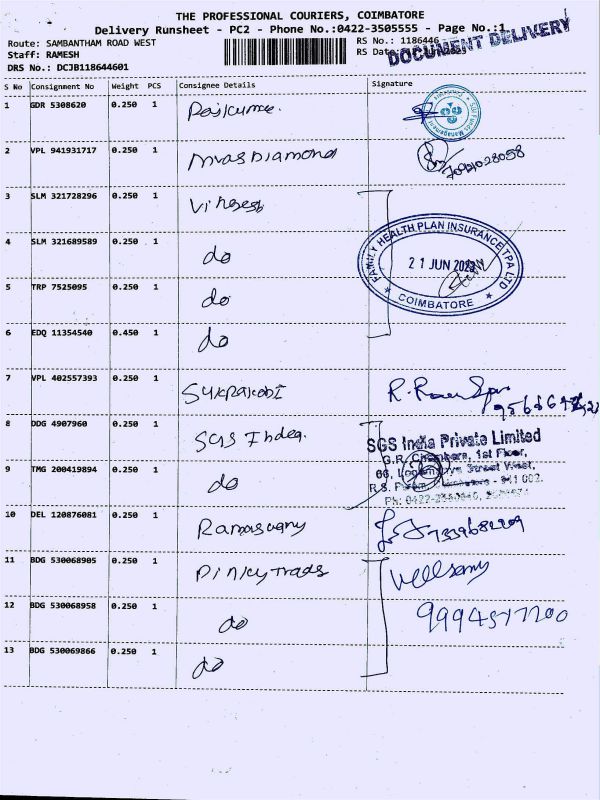 THE PROFESSIONAL COURIERS, COIMBATORE
Delivery Runsheet - PC2 - Phone No.:0422-3505555 - Page No.:1
Route: SAMBANTHAM ROAD WEST
RS No.: 1186446
DOCUMENT DELIVERY
Staff: RAMESH
RS Date
DRS No.: DCJB118644601
S No Consignment No Weight PCS Consignee Details Signature
1 GDR 5308620 0.250 1 Rajkumar.
2 VPL 941931717 0.250 1 Diamond
3 SLM 321728296 0.250 1
4 SLM 321689589 0.250 1 do
FAMILY HEALTH PLAN INSURANCE TPA LTD
21 JUN 2023
COIMBATORE
5 TRP 7525095 0.250 1 do
6 EDQ 11354540 0.450 1 do
7 VPL 402557393 0.250 1
8 DDG 4907960 0.250 1 SGS India.
SGS India Private Limited
G.R. Chambers, 1st Floor,
9 TMG 200419894 0.250 1 do
10 DEL 120876081 0.250 1 Ramaswamy
11 BDG 530068905 0.250 1 Pinky Trads
12 BDG 530068958 0.250 1 do
13 BDG 530069866 0.250 1 do